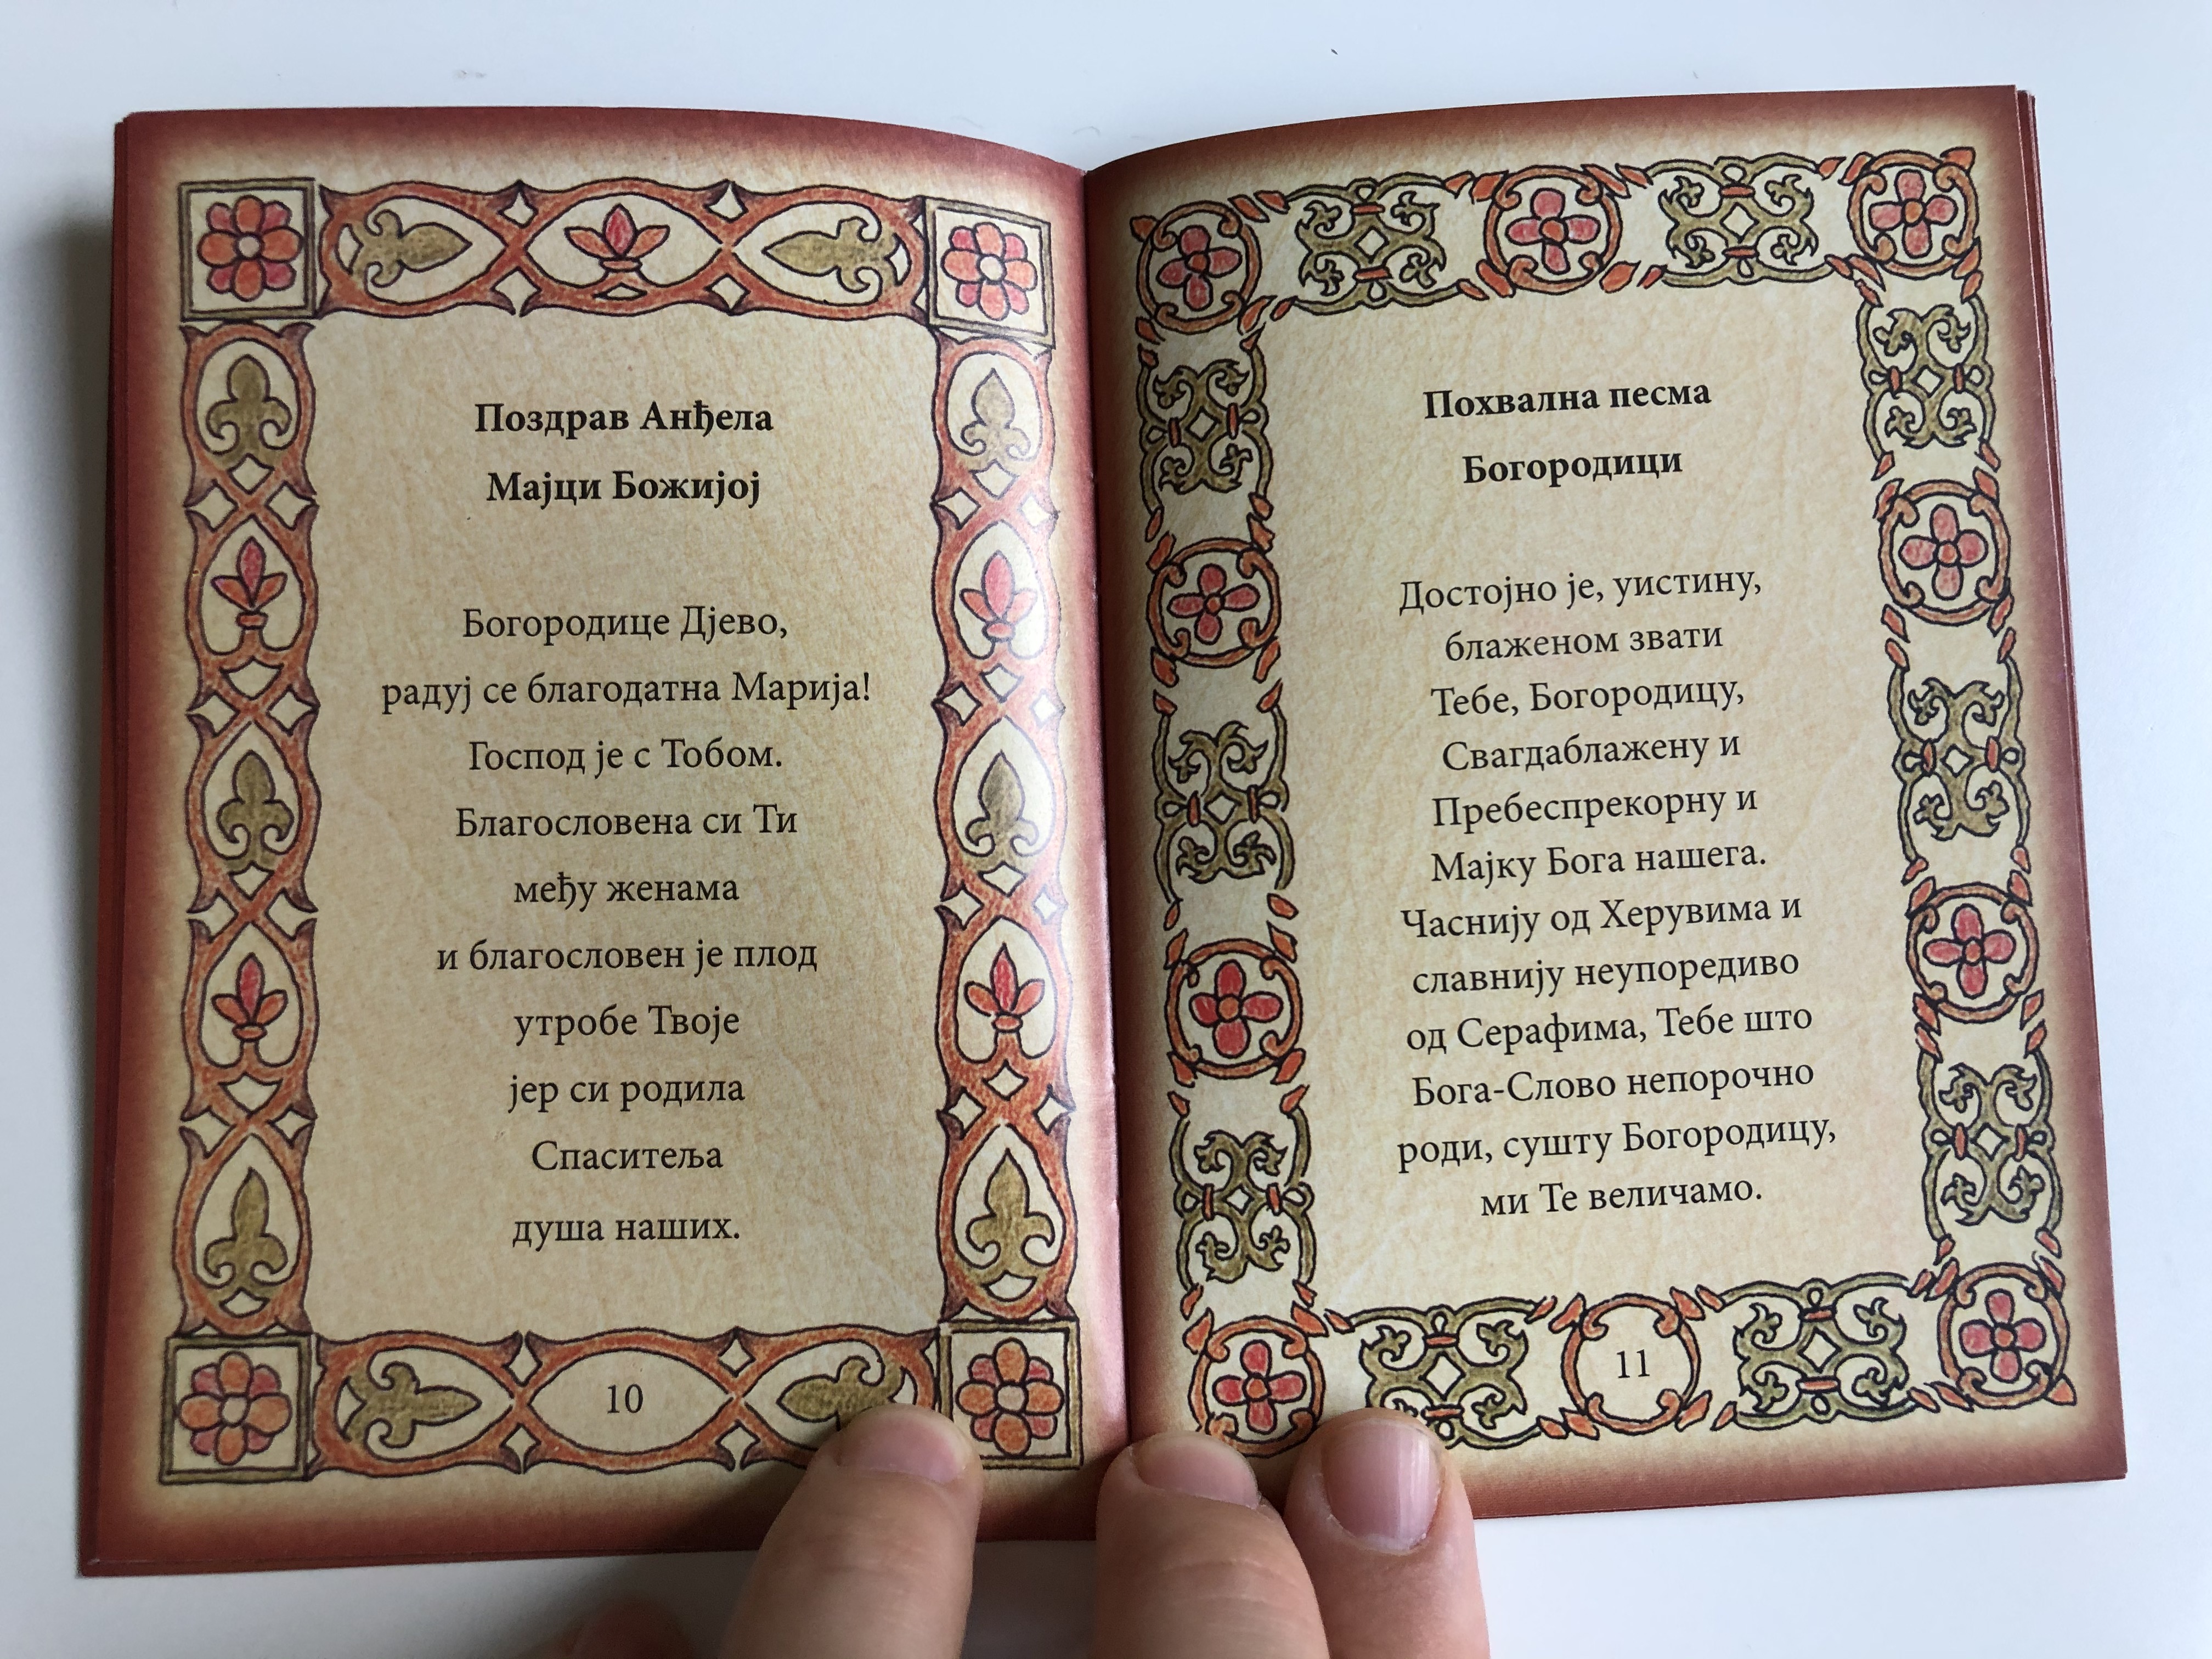 Поздрав Анђела
Мајци Божијој
Богородице Дјево,
радуј се благодатна Марија!
Господ је с Тобом.
Благословена си Ти
међу женама
и благословен је плод
утробе Твоје
јер си родила
Спаситеља
душа наших.
10
Похвална песма
Богородици
Достојно је, уистину,
блаженом звати
Тебе, Богородицу,
Свагдаблажену и
Пребеспрекорну и
Мајку Бога нашега.
Часнију од Херувима и
славнију неупоредиво
од Серафима, Тебе што
Бога-Слово непорочно
роди, сушту Богородицу,
ми Те величамо.
11